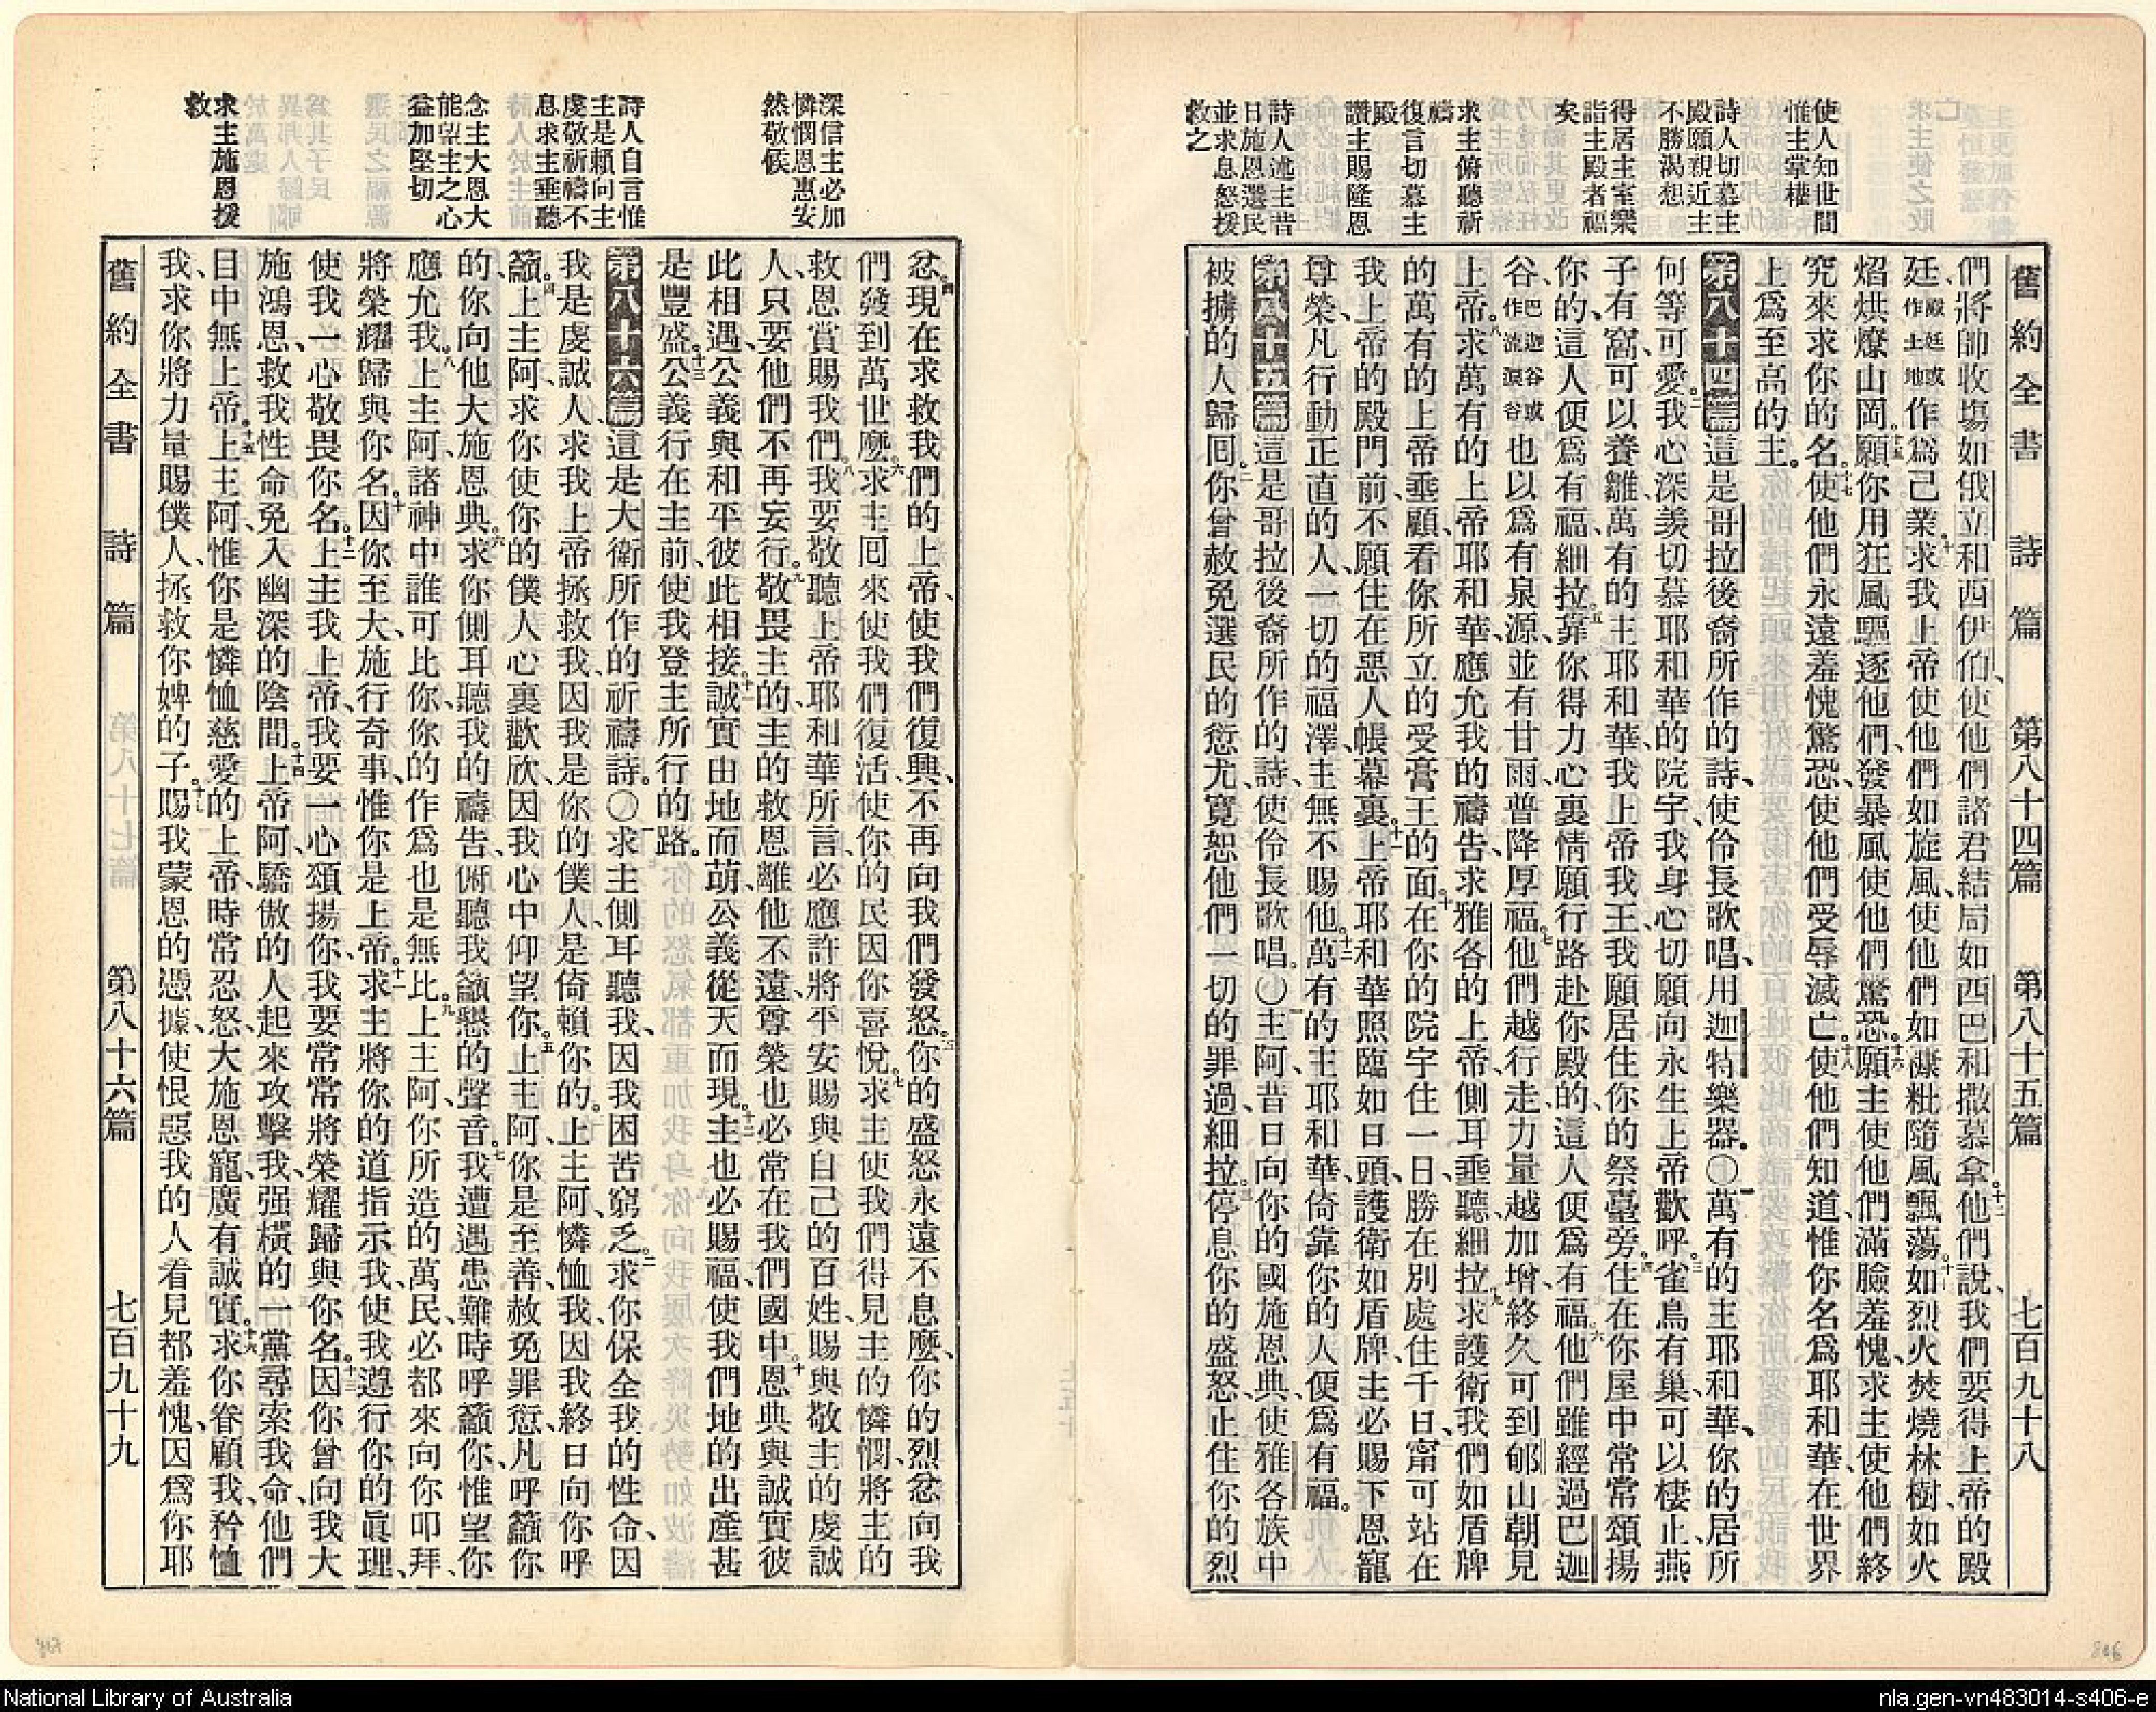 舊約全書　詩篇　第八十四篇　第八十五篇　七百九十八
使人知世間
惟主掌權
詩人切慕主
殿願親近主
不勝渴想
得居主室樂
詣主殿者福
矣
求主俯聽祈
禱
復言切慕主
殿
讚主賜隆恩
詩人述主昔
日施恩選民
並求息怒援
救之
們將帥收塲如俄立和西伊伯、使他們諸君結局如西巴和撒慕拿。十二他們說、我們要得上帝的殿
廷、殿廷或作土地作爲己業。十三求我上帝使他們如旋風、使他們如穅粃隨風飄蕩。十四如烈火焚燒林樹、如火
焰烘燎山岡。十五願你用狂風驅逐他們、發暴風使他們驚恐。十六願主使他們滿臉羞愧、求主使他們終
究來求你的名。十七使他們永遠羞愧驚恐、使他們受辱滅亡。十八使他們知道、惟你名爲耶和華、在世界
上爲至高的主。
第八十四篇這是哥拉後裔所作的詩、使伶長歌唱、用迦特樂器。〇一萬有的主耶和華、你的居所
何等可愛。二我心深羨切慕耶和華的院宇、我身心切願向永生上帝歡呼。三雀鳥有巢可以棲止、燕
子有窩可以養雛、萬有的主耶和華、我上帝我王、我願居住你的祭臺旁。四住在你屋中常常頌揚
你的、這人便爲有福。細拉。五靠你得力、心裏情願行路赴你殿的、這人便爲有福。六他們雖經過巴迦
谷、巴迦谷或作流淚谷也以爲有泉源、並有甘雨、普降厚福。七他們越行走力量越加增、終久可到郇山朝見
上帝。八求萬有的上帝耶和華、應允我的禱告、求雅各的上帝、側耳垂聽。細拉。九求護衛我們如盾牌
的萬有的上帝垂顧、看你所立的受膏王的面。十在你的院宇住一日、勝在別處住千日、甯可站在
我上帝的殿門前、不願住在惡人帳幕裏。十一上帝耶和華照臨如日頭、護衛如盾牌、主必賜下恩寵
尊榮、凡行動正直的人、一切的福澤、主無不賜他。十二萬有的主耶和華、倚靠你的人便爲有福。
第八十五篇這是哥拉後裔所作的詩、使伶長歌唱。〇一主阿、昔日向你的國施恩典、使雅各族中
被擄的人歸回。二你曾赦免選民的愆尤、寬恕他們一切的罪過。細拉。三停息你的盛怒、止住你的烈
深信主必加
憐憫恩惠安
然敬候
詩人自言惟
主是賴向主
虔敬祈禱不
息求主垂聽
念主大恩大
能望主之心
益加堅切
求主施恩援
救
忿。四現在求救我們的上帝、使我們復興、不再向我們發怒。五你的盛怒永遠不息麼、你的烈忿向我
們發到萬世麼。六求主回來使我們復活、使你的民因你喜悅。七求主使我們得見主的憐憫、將主的
救恩賞賜我們。八我要敬聽上帝耶和華所言、必應許將平安賜與自己的百姓、賜與敬主的虔誠
人、只要他們不再妄行。九敬畏主的、主的救恩離他不遠、尊榮也必常在我們國中。十恩典與誠實彼
此相遇、公義與和平彼此相接。十一誠實由地而萌、公義從天而現。十二主也必賜福、使我們地的出產甚
是豐盛。十三公義行在主前、使我登主所行的路。
第八十六篇這是大衛所作的祈禱詩。〇一求主側耳聽我、因我困苦窮乏。二求你保全我的性命、因
我是虔誠人、求我上帝拯救我、因我是你的僕人、是倚賴你的。三上主阿、憐恤我、因我終日向你呼
籲。四上主阿、求你使你的僕人心裏歡欣、因我心中仰望你。五上主阿、你是至善、赦免罪愆、凡呼籲你
的、你向他大施恩典。六求你側耳聽我的禱告、俯聽我籲懇的聲音。七我遭遇患難時呼籲你、惟望你
應允我。八上主阿、諸神中誰可比你、你的作爲也是無比。九上主阿、你所造的萬民、必都來向你叩拜、
將榮耀歸與你名。十因你至大、施行奇事、惟你是上帝。十一求主將你的道指示我、使我遵行你的眞理、
使我一心敬畏你名。十二上主我上帝、我要一心頌揚你、我要常常將榮耀歸與你名。十三因你曾向我大
施鴻恩、救我性命免入幽深的陰間。十四上帝阿、驕傲的人起來攻擊我、强橫的一黨尋索我命、他們
目中無上帝。十五上主阿、惟你是憐恤慈愛的上帝、時常忍怒、大施恩寵、廣有誠實。十六求你眷顧我、矜恤
我、求你將力量賜僕人、拯救你婢的子。十七賜我蒙恩的憑據、使恨惡我的人看見都羞愧、因爲你耶
舊約全書　詩篇　第八十六篇　七百九十九
National Library of Australia
nla.gen-vn483014-s406-e